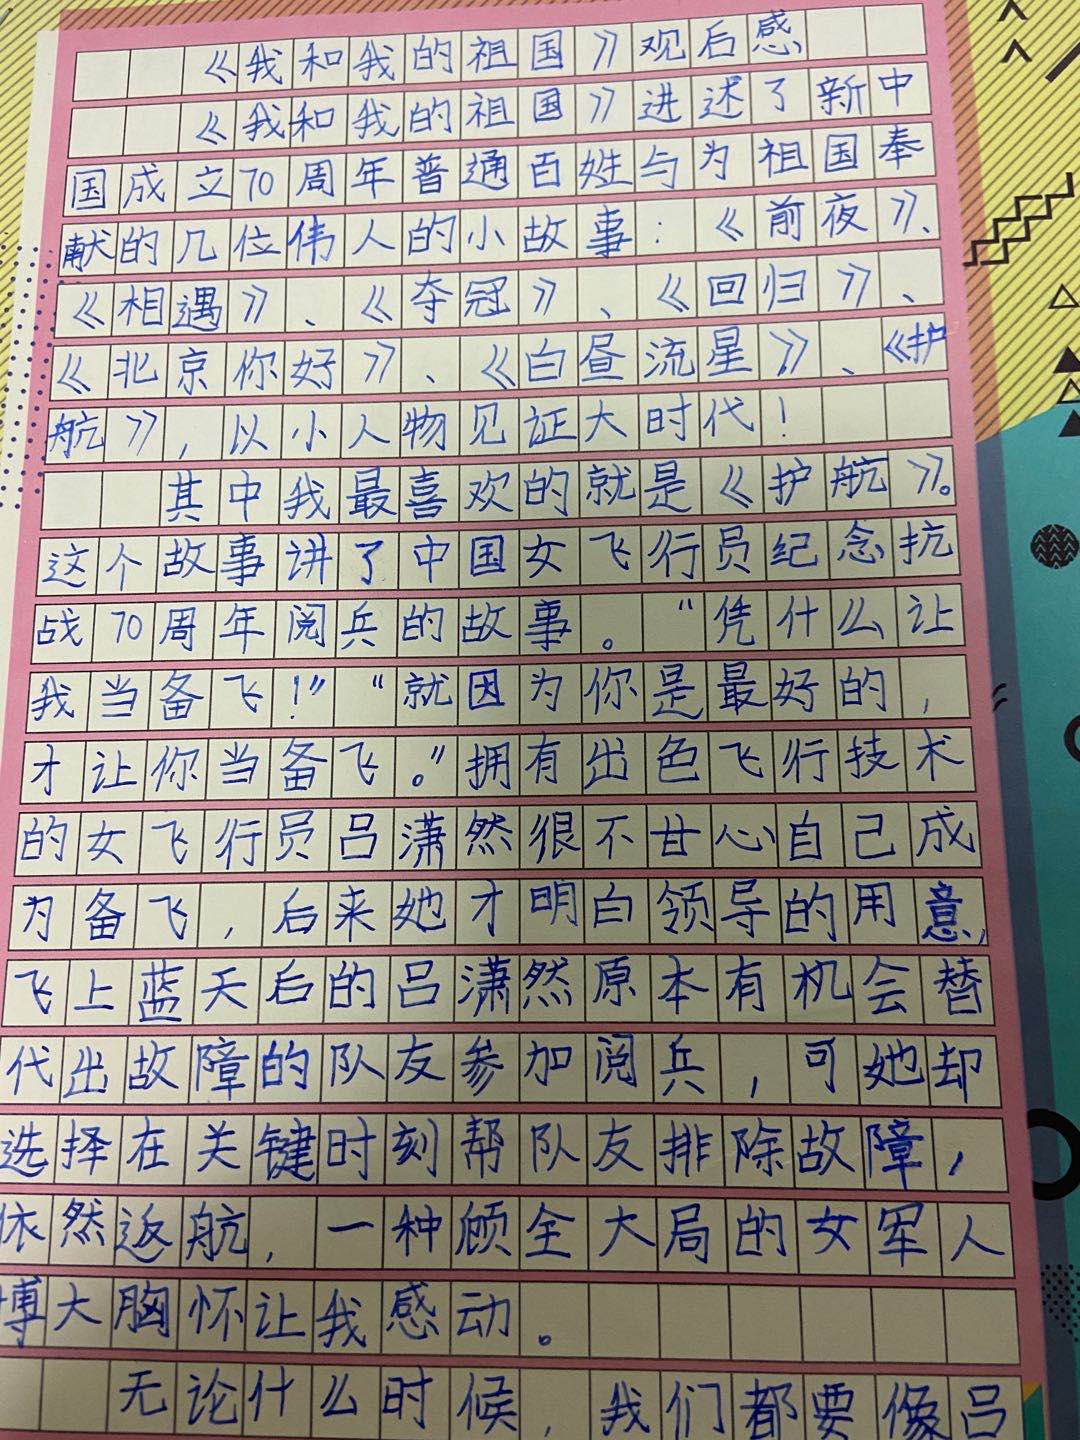 《我和我的祖国》观后感
《我和我的祖国》进述了新中
国成立70周年普通百姓与为祖国奉
献的几位伟人的小故事:《前夜》、
《相遇》、《夺冠》、《回归》、
《北京你好》、《白昼流星》、《护
航》,以小人物见证大时代!
其中我最喜欢的就是《护航》。
这个故事讲了中国女飞行员纪念抗
战70周年阅兵的故事。“凭什么让
我当备飞!”“就因为你是最好的,
才让你当备飞。”拥有出色飞行技术
的女飞行员吕潇然很不甘心自己成
为备飞,后来她才明白领导的用意,
飞上蓝天后的吕潇然原本有机会替
代出故障的队友参加阅兵,可她却
选择在关键时刻帮队友排除故障,
依然返航,一种顾全大局的女军人
博大胸怀让我感动。
无论什么时候,我们都要像吕